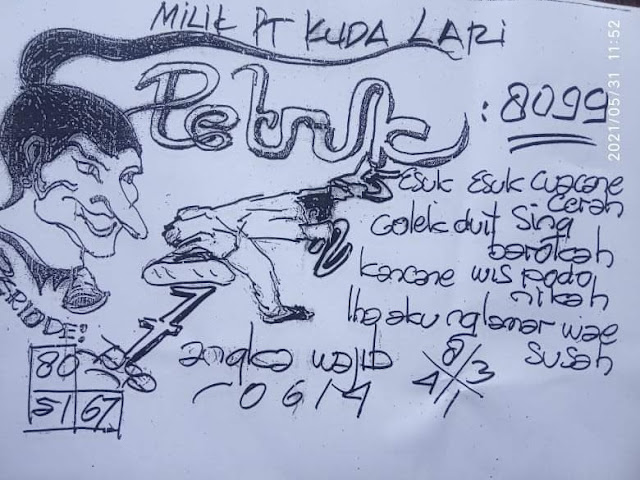 MILIK PT KUDA LARI
Petruk : 8099
Esuk Esuk cuacane
cerah
Golek duit Sing
barokah
kancane wis podo
nikah
lha aku nglamar wae
susah
PERIODE:
80
51 67
angka wajib
0614
8
4 3
1
2021/05/31 11:52